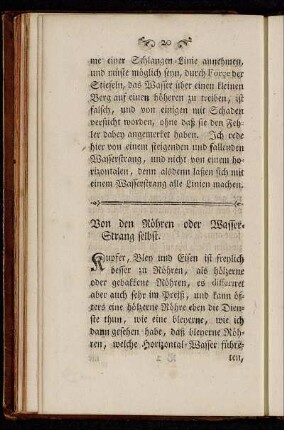 20
me einer Schlangen-Linie annehmen,
und müste möglich seyn, durch Forçe der
Stiefeln, das Wasser über einen kleinen
Berg auf einen höheren zu treiben, ist
falsch, und von einigen mit Schaden
versucht worden, ohne daß sie den Feh-
ler dabey angemerket haben. Ich rede
hier von einem steigenden und fallenden
Wasserstrang, und nicht von einem ho-
rizontalen, denn alsdenn lassen sich mit
einem Wasserstrang alle Linien machen.
Von den Röhren oder Wasser-
Strang selbst.
Kupfer, Bley und Eisen ist freylich
besser zu Röhren, als hölzerne
oder gebackene Röhren, es differiret
aber auch sehr im Preiß, und kann öf-
ters eine hölzerne Röhre eben die Dien-
ste thun, wie eine bleyerne, wie ich
dann gesehen habe, daß bleyerne Röh-
ren, welche Horizontal-Wasser führ-
ten,